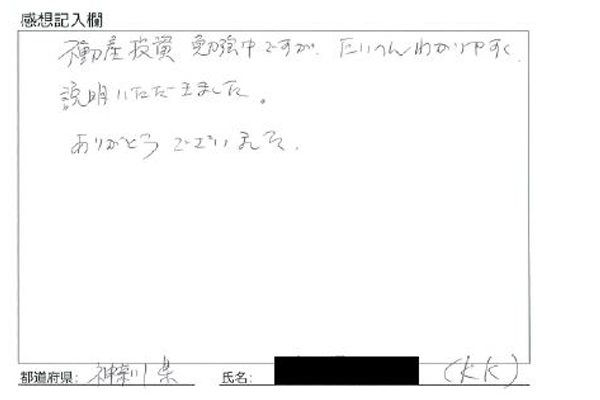 感想記入欄
不動産投資 勉強中ですが、たいへんわかりやすく、
説明いただきました。
ありがとうございました。
都道府県: 神奈川県 氏名: (K.K)